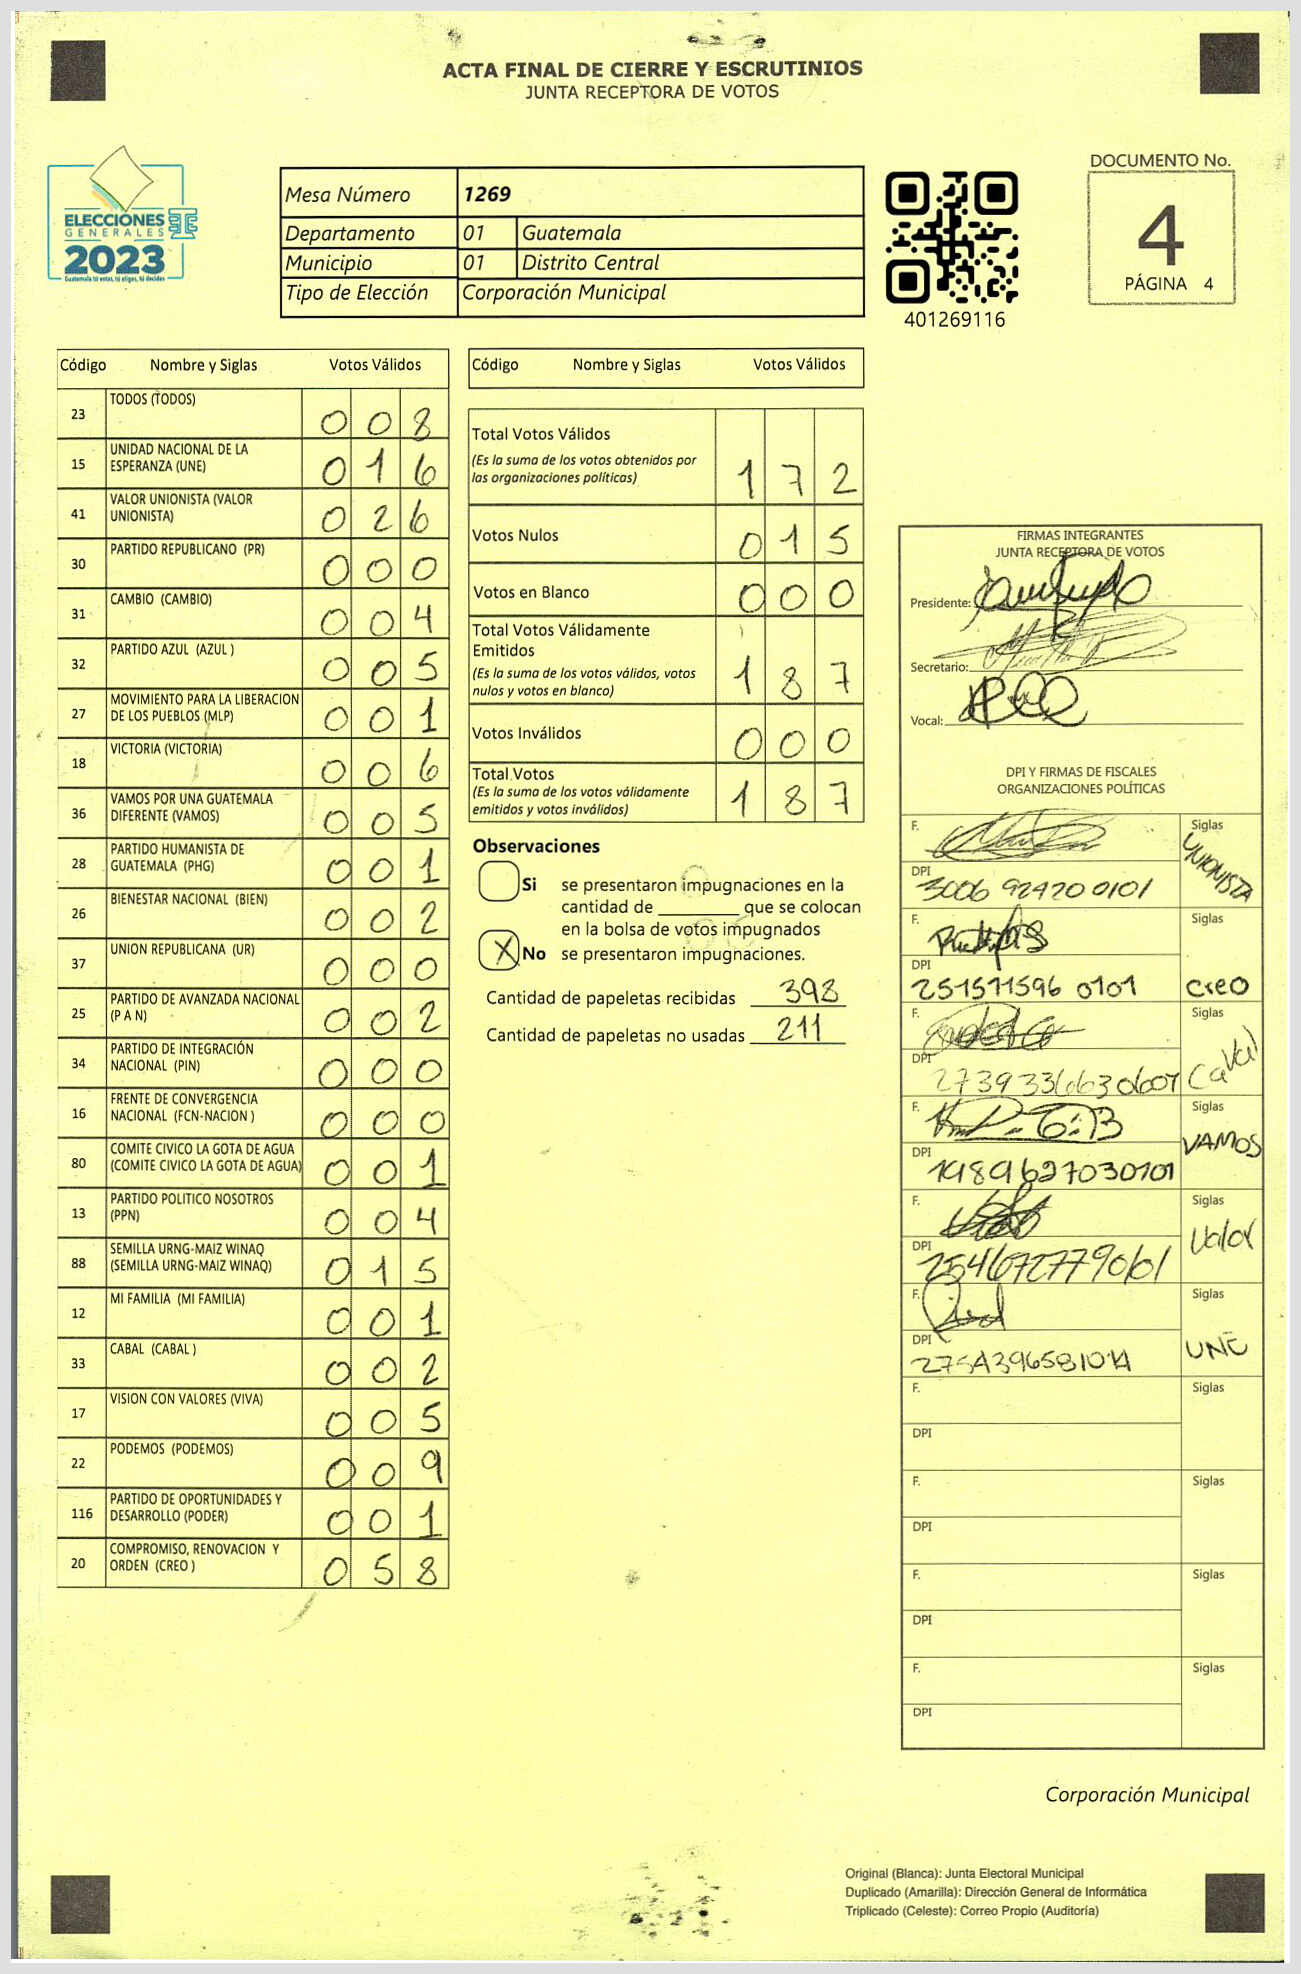 ACTA FINAL DE CIERRE Y ESCRUTINIOS
JUNTA RECEPTORA DE VOTOS
ELECCIONES
GENERALES
2023
Guatemala tú votas, tú eliges, tú decides
Mesa Número 1269
Departamento 01 Guatemala
Municipio 01 Distrito Central
Tipo de Elección Corporación Municipal
401269116
DOCUMENTO No.
4
PÁGINA 4
Código Nombre y Siglas Votos Válidos
23 TODOS (TODOS) 0 0 8
15 UNIDAD NACIONAL DE LA
ESPERANZA (UNE) 0 1 6
41 VALOR UNIONISTA (VALOR
UNIONISTA) 0 2 6
30 PARTIDO REPUBLICANO (PR) 0 0 0
31 CAMBIO (CAMBIO) 0 0 4
32 PARTIDO AZUL (AZUL ) 0 0 5
27 MOVIMIENTO PARA LA LIBERACION
DE LOS PUEBLOS (MLP) 0 0 1
18 VICTORIA (VICTORIA) 0 0 6
36 VAMOS POR UNA GUATEMALA
DIFERENTE (VAMOS) 0 0 5
28 PARTIDO HUMANISTA DE
GUATEMALA (PHG) 0 0 1
26 BIENESTAR NACIONAL (BIEN) 0 0 2
37 UNION REPUBLICANA (UR) 0 0 0
25 PARTIDO DE AVANZADA NACIONAL
(P A N) 0 0 2
34 PARTIDO DE INTEGRACIÓN
NACIONAL (PIN) 0 0 0
16 FRENTE DE CONVERGENCIA
NACIONAL (FCN-NACION ) 0 0 0
80 COMITE CIVICO LA GOTA DE AGUA
(COMITE CIVICO LA GOTA DE AGUA) 0 0 1
13 PARTIDO POLITICO NOSOTROS
(PPN) 0 0 4
88 SEMILLA URNG-MAIZ WINAQ
(SEMILLA URNG-MAIZ WINAQ) 0 1 5
12 MI FAMILIA (MI FAMILIA) 0 0 1
33 CABAL (CABAL ) 0 0 2
17 VISION CON VALORES (VIVA) 0 0 5
22 PODEMOS (PODEMOS) 0 0 9
116 PARTIDO DE OPORTUNIDADES Y
DESARROLLO (PODER) 0 0 1
20 COMPROMISO, RENOVACION Y
ORDEN (CREO ) 0 5 8
Código Nombre y Siglas Votos Válidos
Total Votos Válidos
(Es la suma de los votos obtenidos por
las organizaciones politicas) 1 7 2
Votos Nulos 0 1 5
Votos en Blanco 0 0 0
Total Votos Válidamente
Emitidos
(Es la suma de los votos válidos, votos
nulos y votos en blanco) 1 8 7
Votos Inválidos 0 0 0
Total Votos
(Es la suma de los votos válidamente
emitidos y votos inválidos) 1 8 7
Observaciones
Si se presentaron impugnaciones en la
cantidad de ________ que se colocan
en la bolsa de votos impugnados
X No se presentaron impugnaciones.
Cantidad de papeletas recibidas 398
Cantidad de papeletas no usadas 211
FIRMAS INTEGRANTES
JUNTA RECEPTORA DE VOTOS
Presidente:
Secretario:
Vocal:
DPI Y FIRMAS DE FISCALES
ORGANIZACIONES POLÍTICAS
F. Siglas
UNIONISTA
DPI
3006 92420 0101
F. Siglas
DPI
251511596 0101 Creo
F. Siglas
DPI
F. Siglas
VAMOS
DPI
1989627030101
F. Siglas
Valor
DPI
F. Siglas
UNE
DPI
F. Siglas
DPI
F. Siglas
DPI
F. Siglas
DPI
F. Siglas
DPI
Corporación Municipal
Original (Blanca): Junta Electoral Municipal
Duplicado (Amarilla): Dirección General de Informática
Triplicado (Celeste): Correo Propio (Auditoría)